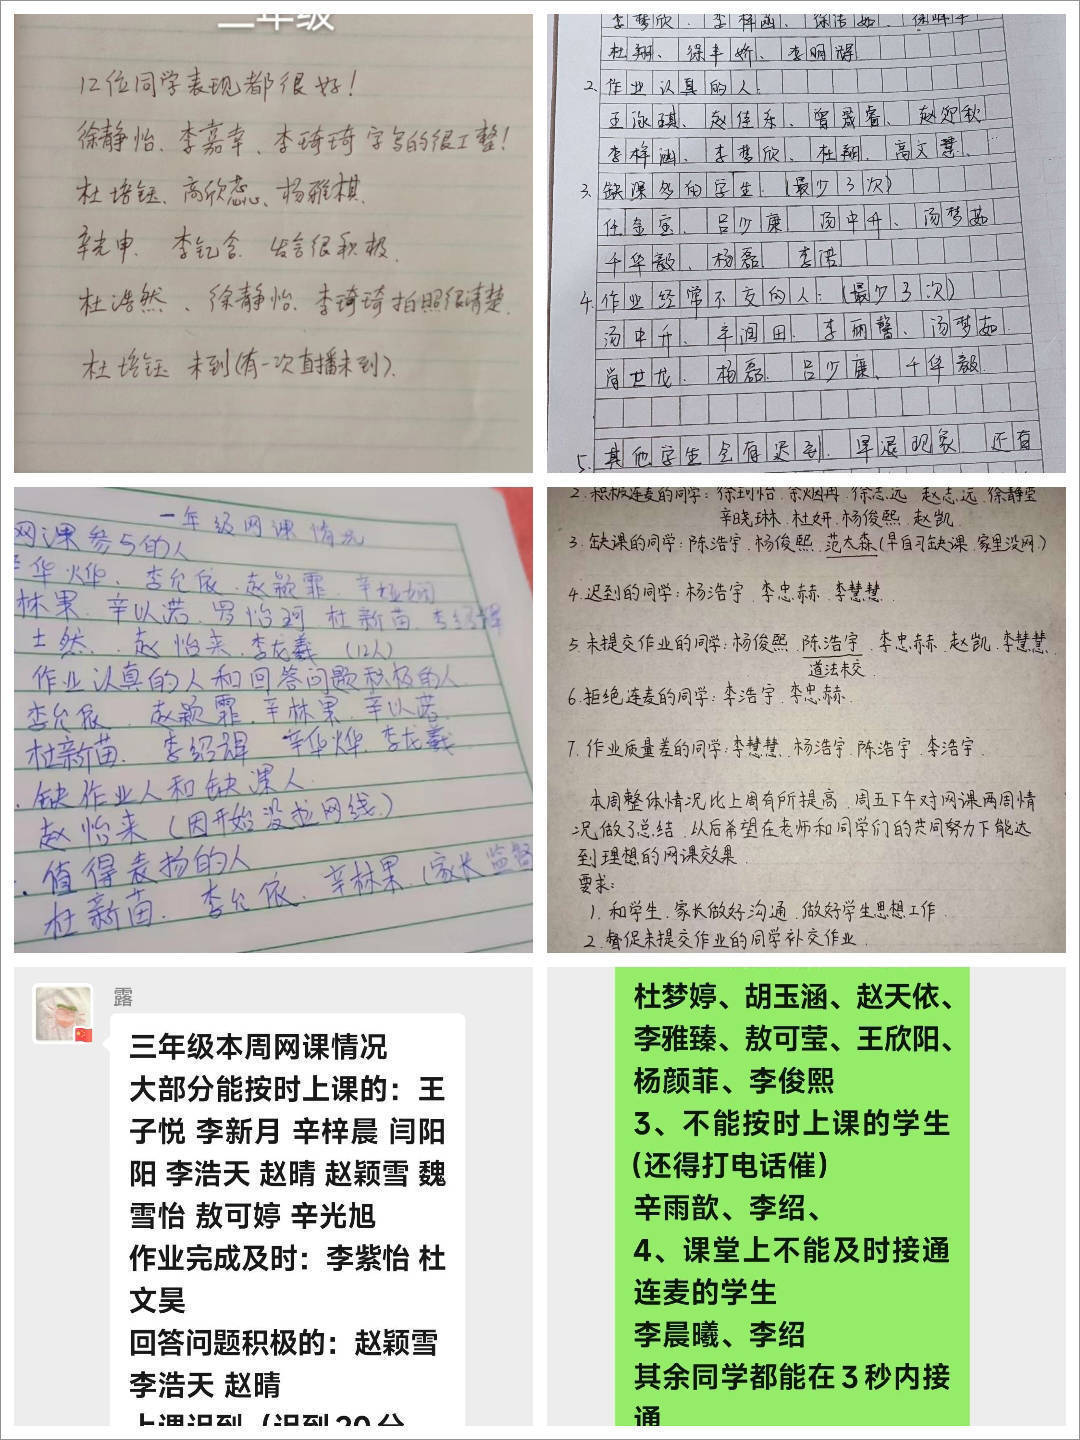 二年级
12位同学表现都很好！
徐静怡、李嘉幸、李琦琦字写的很工整！
杜培钰、高欣蕊、杨雅棋
辛光申、李钇含 发言很积极
杜浩然、徐静怡、李琦琦拍照很清楚.
杜培钰 未到(有一次直播未到).
李梦欣、李梓涵、徐浩
杜翔、徐丰娇、李明辉
2.作业认真的人：
赵佳乐、曾晟睿、
李梓涵、李梦欣、杜翔、高文慧、
3.缺课多的学生.(最少3次)
任金宝、吕少康、汤中升、汤梦茹
千华毅、杨磊 李诺
4.作业经常不交的人：(最少3次)
汤中升、辛润田、李丽馨、汤梦茹.
肖世龙、杨磊、吕少康、千华毅
5.其他学生会有迟到、早退现象.还有
一年级网课情况
网课参与的人
华烨、李允依、赵颖霏、辛
林果、辛以诺、罗怡珂 杜新苗、李绍辉
然、赵怡来、李龙羲 (12人)
作业认真的人和回答问题积极的人
李允依、赵颖霏.辛林果、辛以诺.
杜新苗、李绍辉 辛华烨.李龙羲
缺作业人和缺课人
赵怡来(因开始没拉网线)
值得表扬的人
杜新苗、李允依、辛林果、(家长监督
2.积极连麦的同学：徐珂怡.余烟冉.徐志远 赵志远.徐静莹
辛晓琳.杜妍.杨俊熙.赵凯
3.缺课的同学：陈浩宇.杨俊熙.范太森(早自习缺课.家里没网.)
4.迟到的同学：杨浩宇.李忠赫.李慧慧.
5未提交作业的同学：杨俊熙.陈浩宇.李忠赫.赵凯.李慧慧
道法未交
6.拒绝连麦的同学：李浩宇.李忠赫.
7.作业质量差的同学：李慧慧.杨浩宇.陈浩宇.李浩宇.
本周整体情况比上周有所提高.周五下午对网课两周情
况做了总结.从后希望在老师和同学们的共同努力下能达
到理想的网课效果.
要求：
1.和学生.家长做好沟通.做好学生思想工作.
2.督促未提交作业的同学补交作业.
露
三年级本周网课情况
大部分能按时上课的：王
子悦 李新月 辛梓晨 闫阳
阳 李浩天 赵晴 赵颖雪 魏
雪怡 敖可婷 辛光旭
作业完成及时：李紫怡 杜
文昊
回答问题积极的：赵颖雪
李浩天 赵晴
上课迟到（迟到20分
杜梦婷、胡玉涵、赵天依、
李雅臻、敖可莹、王欣阳、
杨颜菲、李俊熙
3、不能按时上课的学生
（还得打电话催）
辛雨歆、李绍、
4、课堂上不能及时接通
连麦的学生
李晨曦、李绍
其余同学都能在3秒内接
通